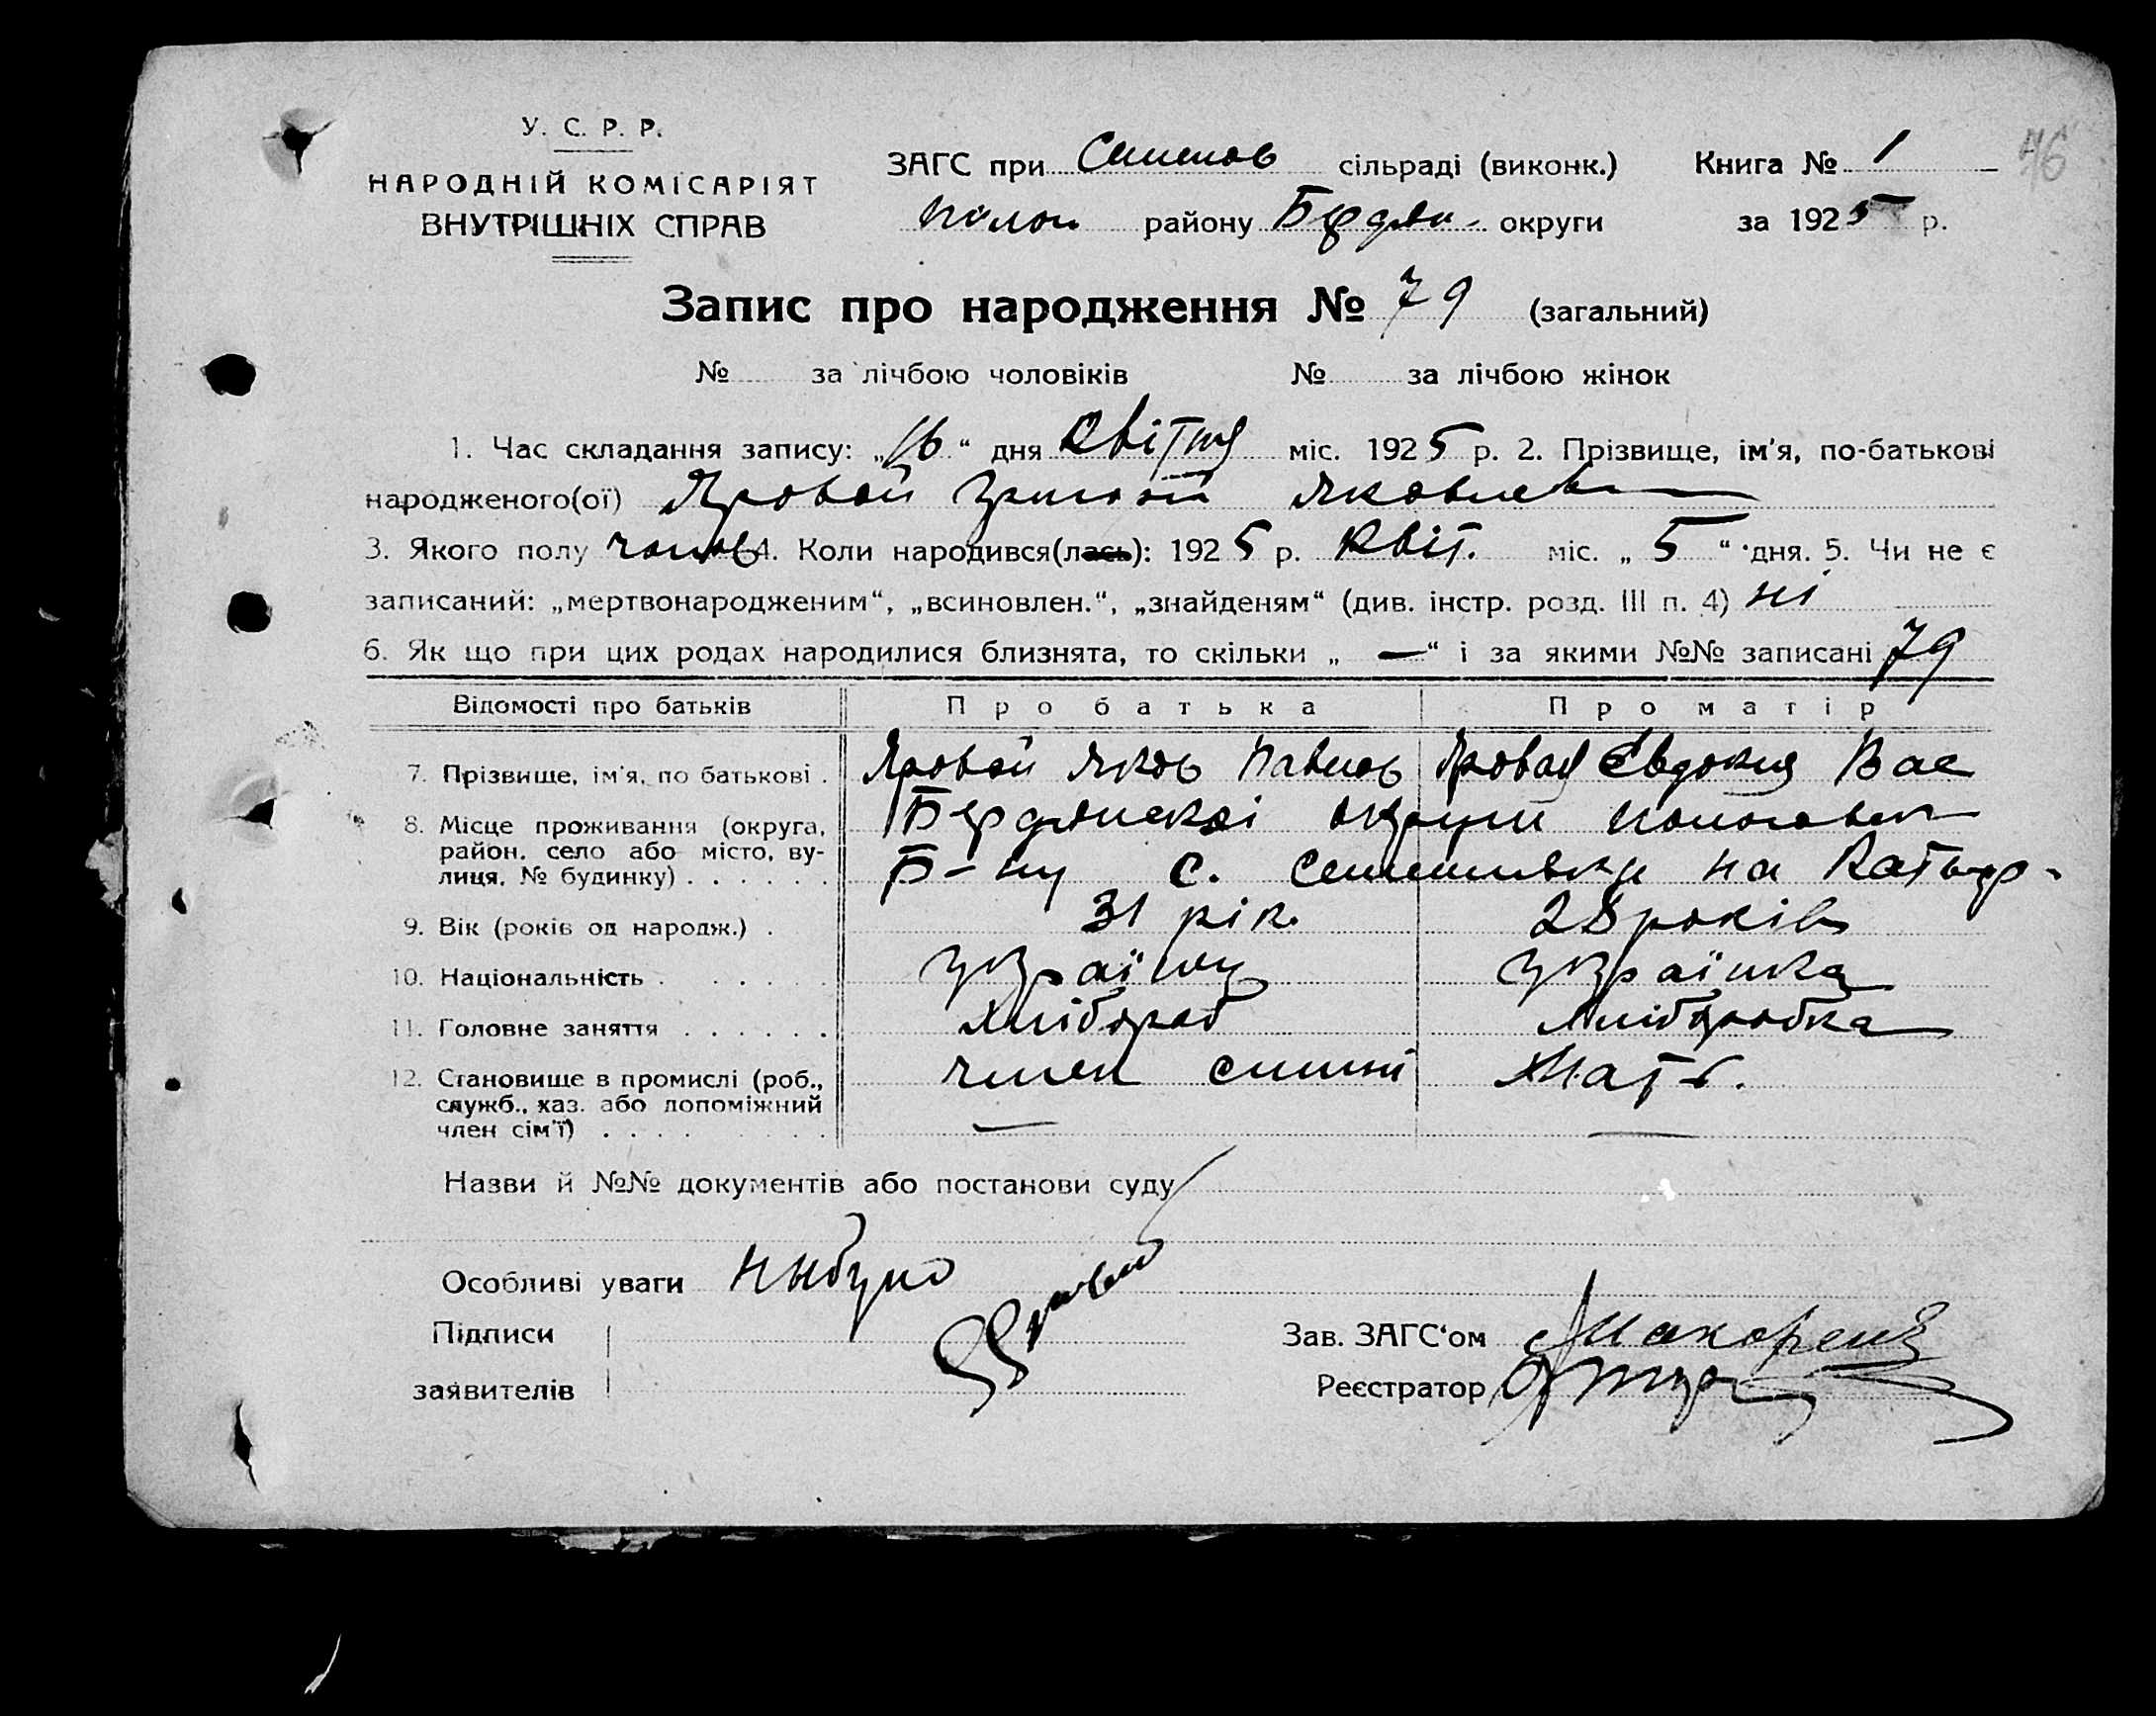 У. С. Р. Р.
НАРОДНІЙ КОМІСАРІЯТ
ВНУТРІШНІХ СПРАВ
ЗАГС при Семенов сільраді (виконк.) Книга № 1
76
Полог району Бердян- округи за 1925 р.
Запис про народження № 79 (загальний)
№ за лічбою чоловіків № за лічбою жінок
1. Час складання запису: „16“ дня Квітня міс. 1925 р. 2. Прізвище, ім'я, по-батькові
народженого(ої) Яровой Яковлев
3. Якого полу чолов 4. Коли народився(лась): 1925 р. Квіт. міс. „5“ дня. 5. Чи не є
записаний: „мертвонародженим“, „всиновлен.“, „знайденям“ (див. інстр. розд. III п. 4) ні
6. Як що при цих родах народилися близнята, то скільки „—“ і за якими №№ записані 79
Відомості про батьків Про батька Про матір
7. Прізвище, ім'я, по батькові . Яровой Яков Павлов Яровая Євдокия Вас
8. Місце проживання (округа, район, село або місто, вулиця, № будинку) . . . . . . Бердянскоі округи Пологовск
Р-ну с. Семенивки на
9. Вік (років од народж.) . 31 рік. 28 років
10. Національність . . . . . . україну українка
11. Головне заняття . . . . . . Хлібороб Хліборобка
12. Становище в промислі (роб., служб., хаз. або допоміжний член сім'ї) . . . . член симьі Мать.
— —
Назви й №№ документів або постанови суду
Особливі уваги ныбуло
Підписи
заявителів Яровой
Зав. ЗАГС‘ом
Реєстратор